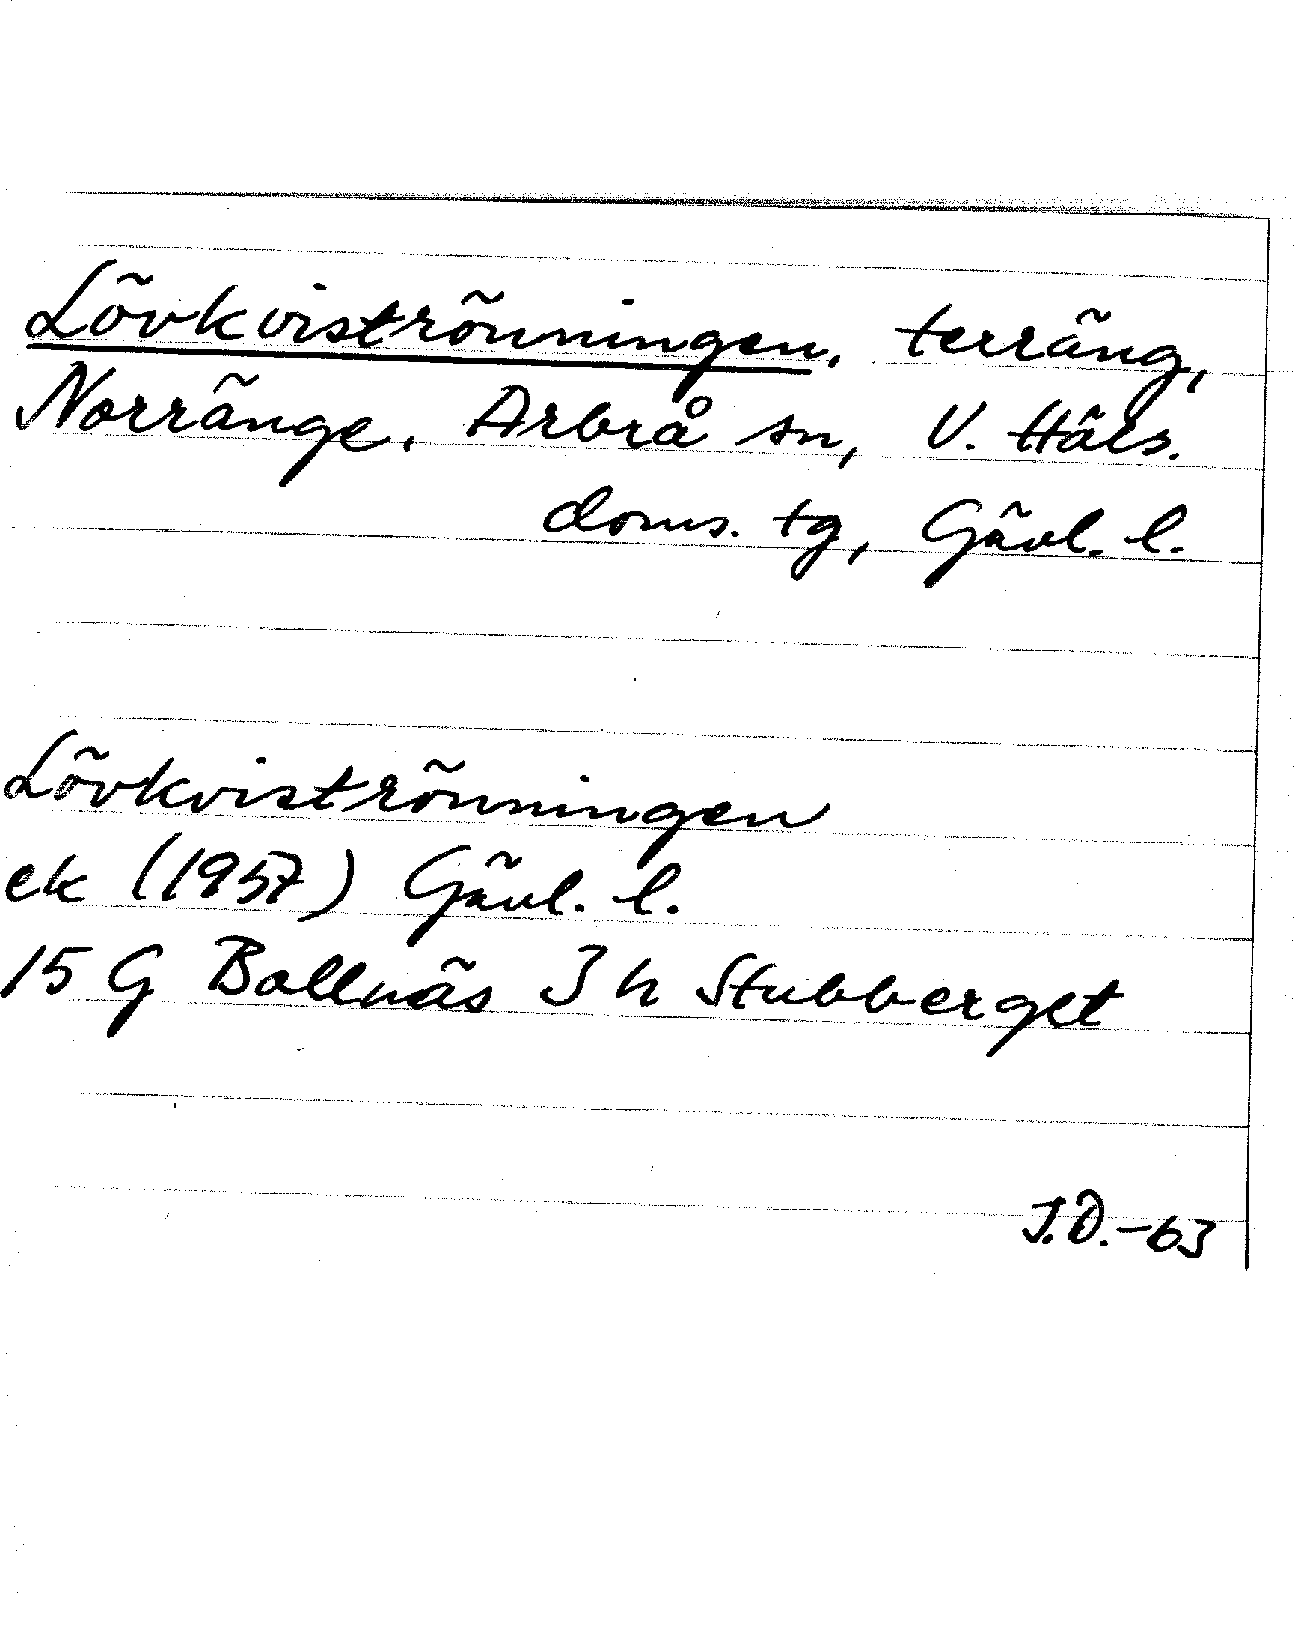 Lövkviströnningen, terräng,
Norränge, Arbrå sn, V. Häls.
doms. tg, Gävl. l.
Lövkviströnningen
ek (1957) Gävl. l.
15 G Bollnäs 3 h Stubberget
J.Ö.-63